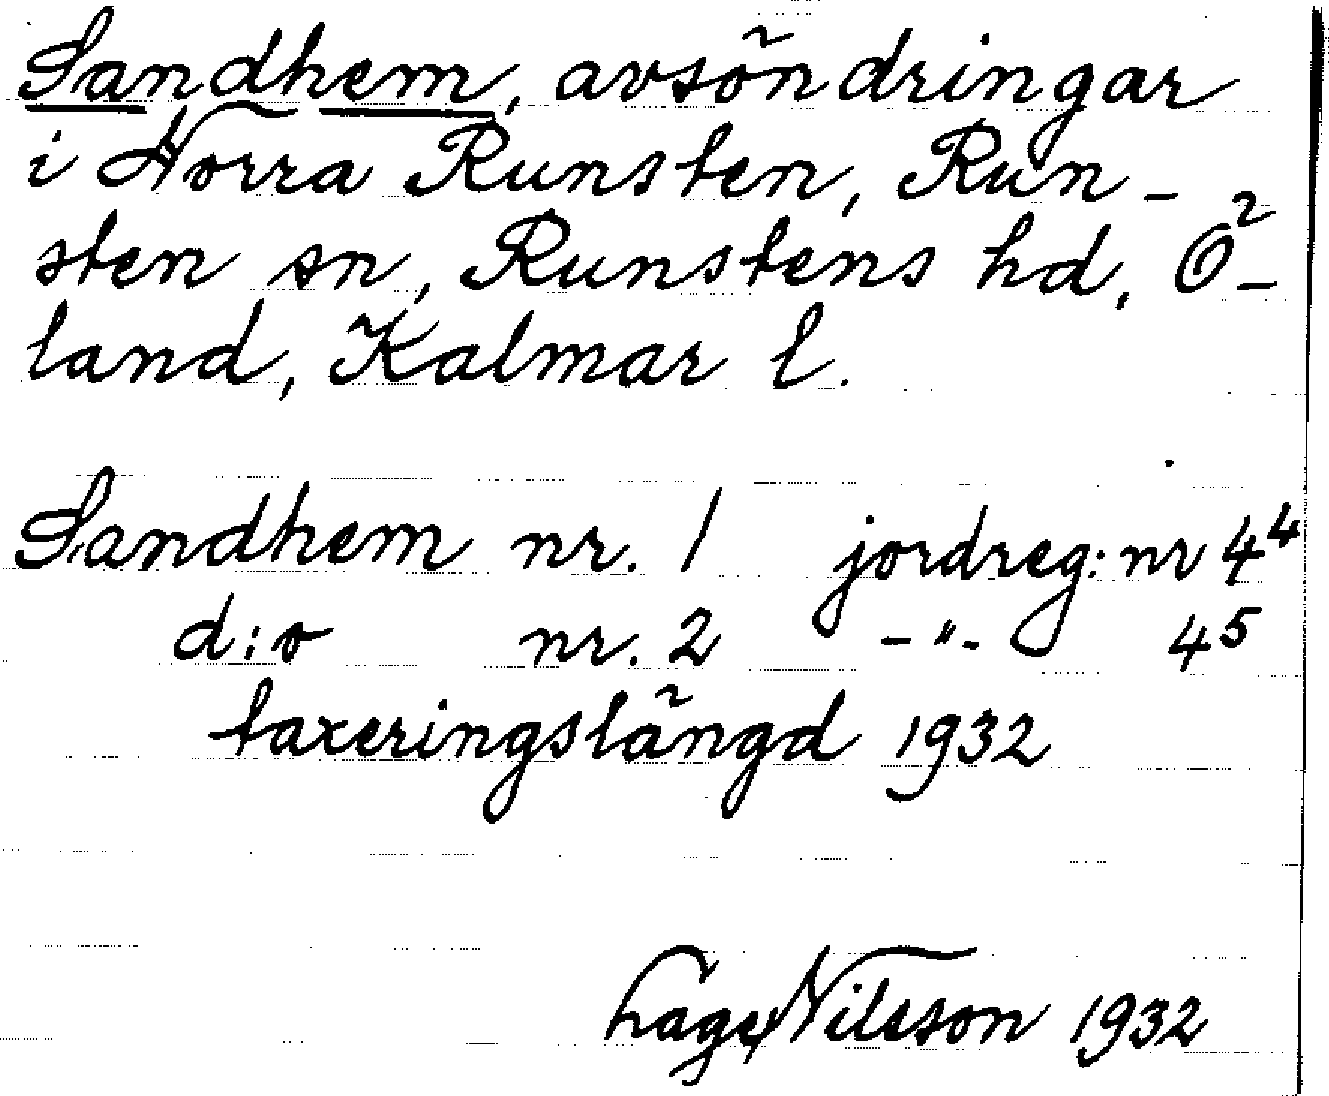 Sandhem, avsöndringar
i Norra Runsten, Run-
sten sn, Runstens hd, Ö-
land, Kalmar l.
Sandhem nr. 1 jordreg: nr 4⁴
d:o nr. 2 -"- 4⁵
taxeringslängd 1932
Hage Nilsson 1932